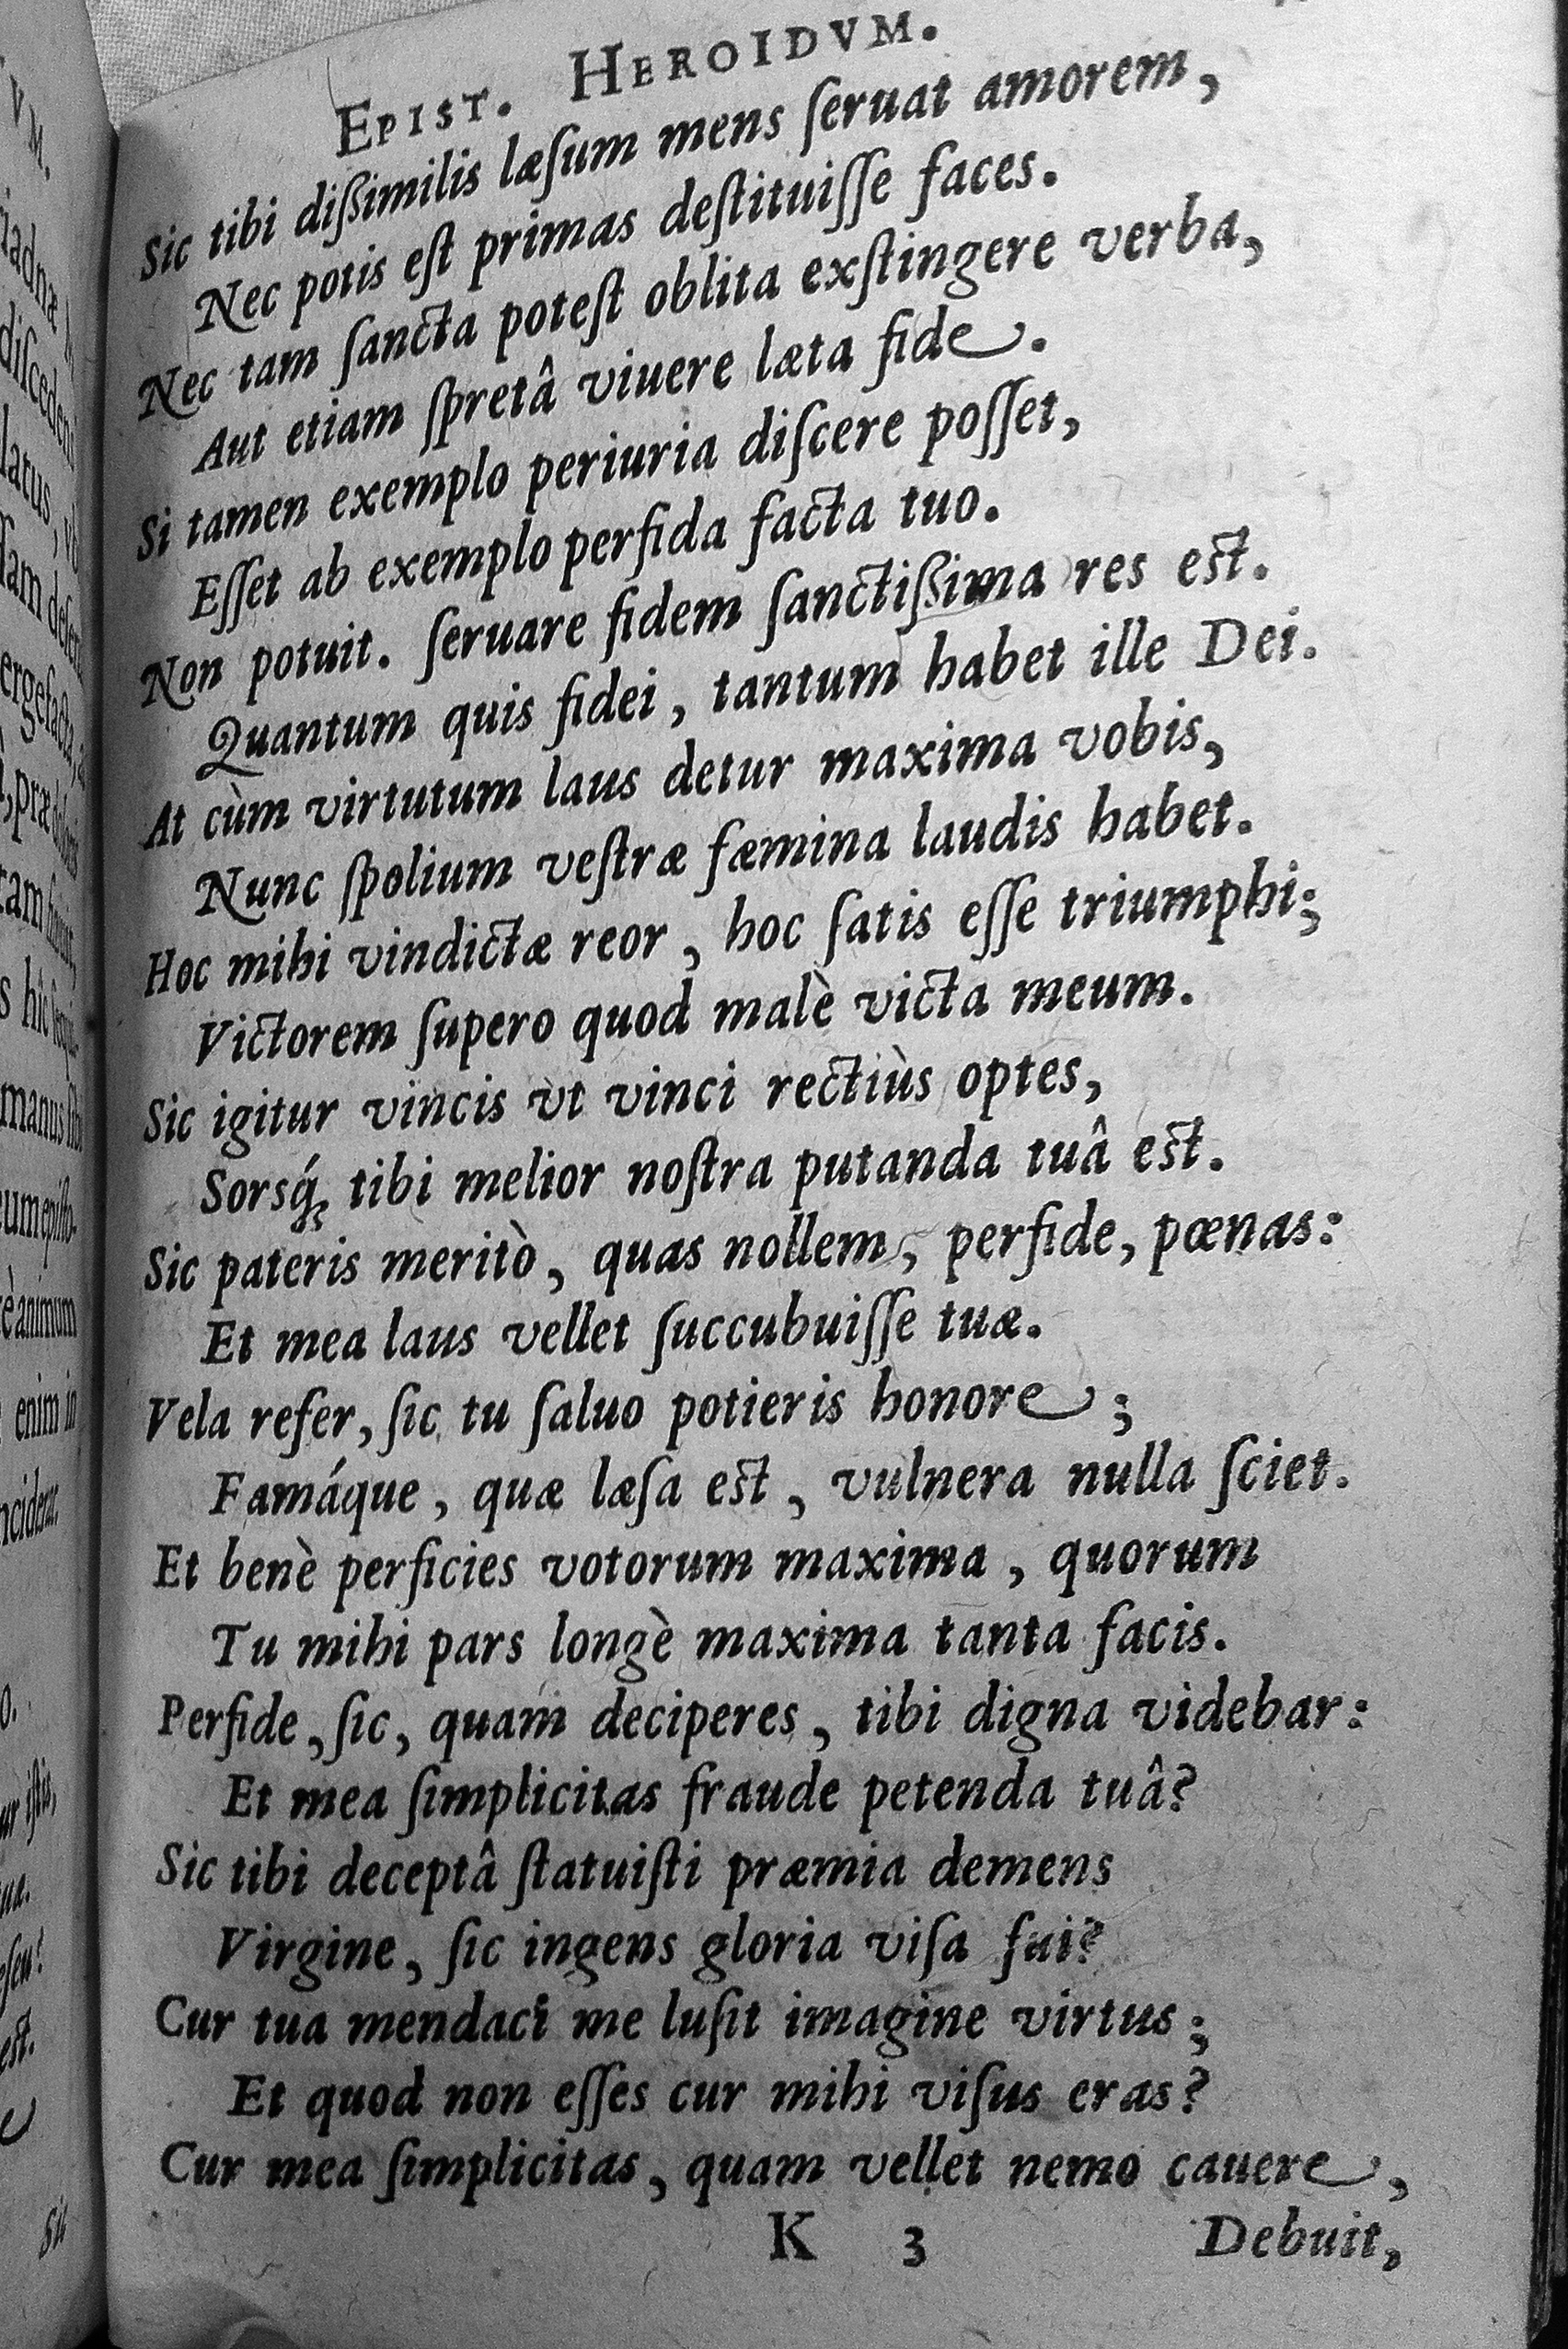 EPIST. HEROIDVM.
Sic tibi dißimilis læſum mens ſeruat amorem,
Nec potis eſt primas deſtituiſſe faces.
Nec tam ſancta poteſt oblita exſtingere verba,
Aut etiam ſpretâ viuere læta fide.
Si tamen exemplo periuria diſcere poſſet,
Eſſet ab exemplo perfida facta tuo.
Non potuit. ſeruare fidem ſanctißima res eſt.
Quantum quis fidei, tantum habet ille Dei.
At cùm virtutum laus detur maxima vobis,
Nunc ſpolium veſtræ fæmina laudis habet.
Hoc mihi vindictæ reor, hoc ſatis eſſe triumphi;
Victorem ſupero quod malè victa meum.
Sic igitur vincis vt vinci rectiùs optes,
Sorsq́; tibi melior noſtra putanda tuâ eſt.
Sic pateris meritò, quas nollem, perfide, pœnas:
Et mea laus vellet ſuccubuiſſe tuæ.
Vela refer, ſic tu ſaluo potieris honore;
Famáque, quæ læſa eſt, vulnera nulla ſciet.
Et benè perficies votorum maxima, quorum
Tu mihi pars longè maxima tanta facis.
Perfide, ſic, quam deciperes, tibi digna videbar:
Et mea ſimplicitas fraude petenda tuâ?
Sic tibi deceptâ ſtatuiſti præmia demens
Virgine, ſic ingens gloria viſa fui?
Cur tua mendaci me luſit imagine virtus;
Et quod non eſſes cur mihi viſus eras?
Cur mea ſimplicitas, quam vellet nemo cauere,
K 3 Debuit,